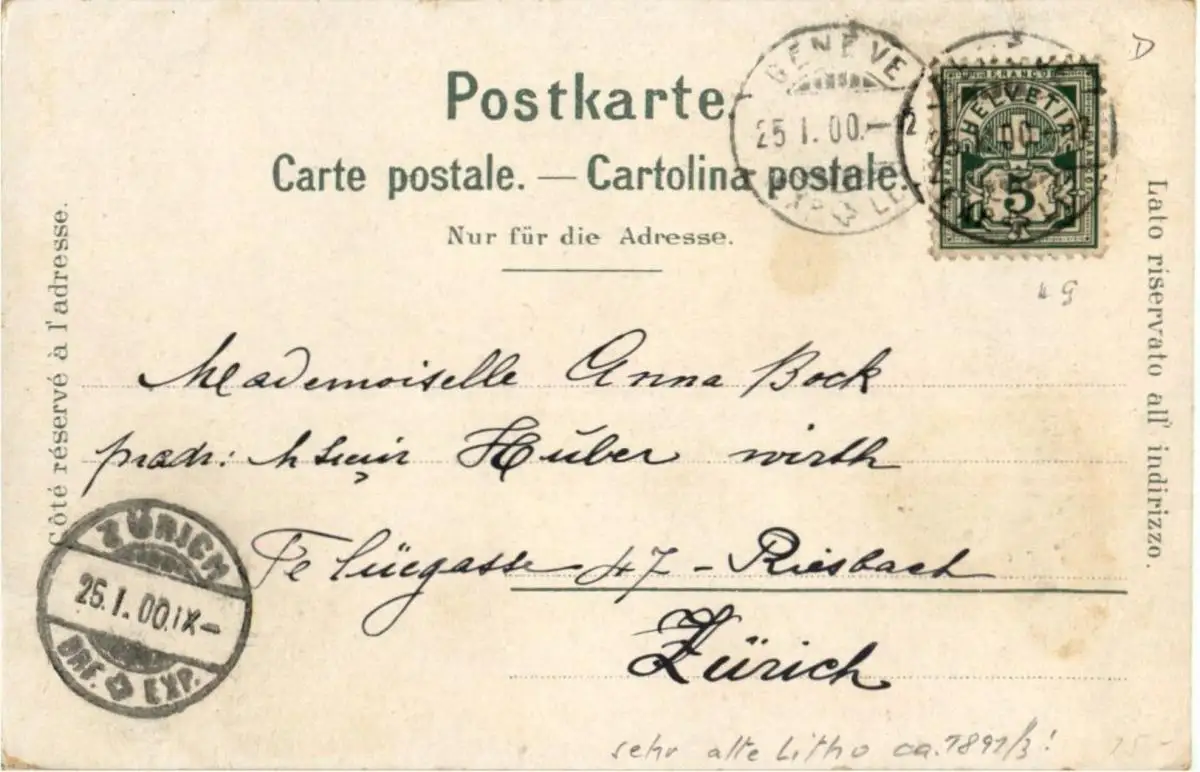 Postkarte.
Carte postale. — Cartolina postale.
Nur für die Adresse.
Côté réservé à l'adresse.
Lato riservato all' indirizzo.
GENÈVE
25 I. 00.—
EXP. LE
FRANCO
HELVETIA
5
D
Mademoiselle Anna Bock
Huber wirth
47 - Riesbach
Zürich
ZÜRICH
25. I. 00. IX—
BRF. EXP.
sehr alte Litho ca. 1891/3!
15.-